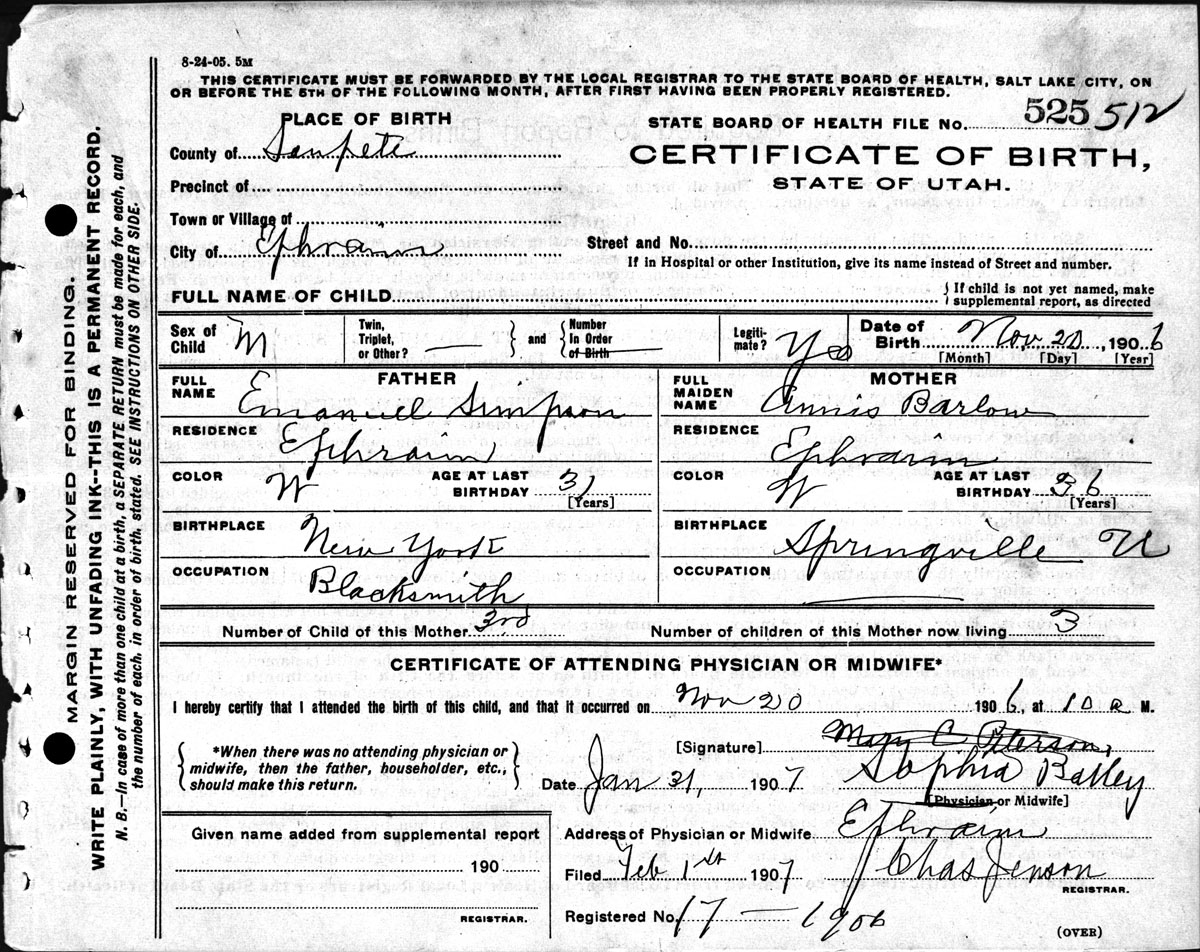 8-24-05. 5M
THIS CERTIFICATE MUST BE FORWARDED BY THE LOCAL REGISTRAR TO THE STATE BOARD OF HEALTH, SALT LAKE CITY, ON
OR BEFORE THE 5TH OF THE FOLLOWING MONTH, AFTER FIRST HAVING BEEN PROPERLY REGISTERED.
PLACE OF BIRTH
STATE BOARD OF HEALTH FILE No. 525 512
County of Sanpete
CERTIFICATE OF BIRTH,
STATE OF UTAH.
Precinct of
Town or Village of
City of Ephraim
Street and No.
If in Hospital or other Institution, give its name instead of Street and number.
FULL NAME OF CHILD
If child is not yet named, make
supplemental report, as directed
Sex of Child M
Twin, Triplet, or Other?
and
Number In Order of Birth
Legiti-mate? Yes
Date of Birth Nov. 20, 1906
[Month] [Day] [Year]
FATHER
FULL NAME Emanuel Simpson
RESIDENCE Ephraim
COLOR W
AGE AT LAST BIRTHDAY 31
[Years]
BIRTHPLACE New York
OCCUPATION Blacksmith
MOTHER
FULL MAIDEN NAME Annis Barlow
RESIDENCE Ephraim
COLOR W
AGE AT LAST BIRTHDAY 36
[Years]
BIRTHPLACE Springville U
OCCUPATION
Number of Child of this Mother 3rd
Number of children of this Mother now living 3
CERTIFICATE OF ATTENDING PHYSICIAN OR MIDWIFE*
I hereby certify that I attended the birth of this child, and that it occurred on Nov 20 1906, at 10 a M.
*When there was no attending physician or
midwife, then the father, householder, etc.,
should make this return.
[Signature] Mary C Peterson,
Date Jan 31, 1907 Sophia Bailey
[Physician or Midwife]
Given name added from supplemental report
190
REGISTRAR.
Address of Physician or Midwife Ephraim
Filed Feb 1st 1907 Chas Jenson
REGISTRAR.
Registered No. 17 — 1906
(OVER)
MARGIN RESERVED FOR BINDING.
WRITE PLAINLY, WITH UNFADING INK--THIS IS A PERMANENT RECORD.
N. B.—In case of more than one child at a birth, a SEPARATE RETURN must be made for each, and
the number of each, in order of birth, stated. SEE INSTRUCTIONS ON OTHER SIDE.